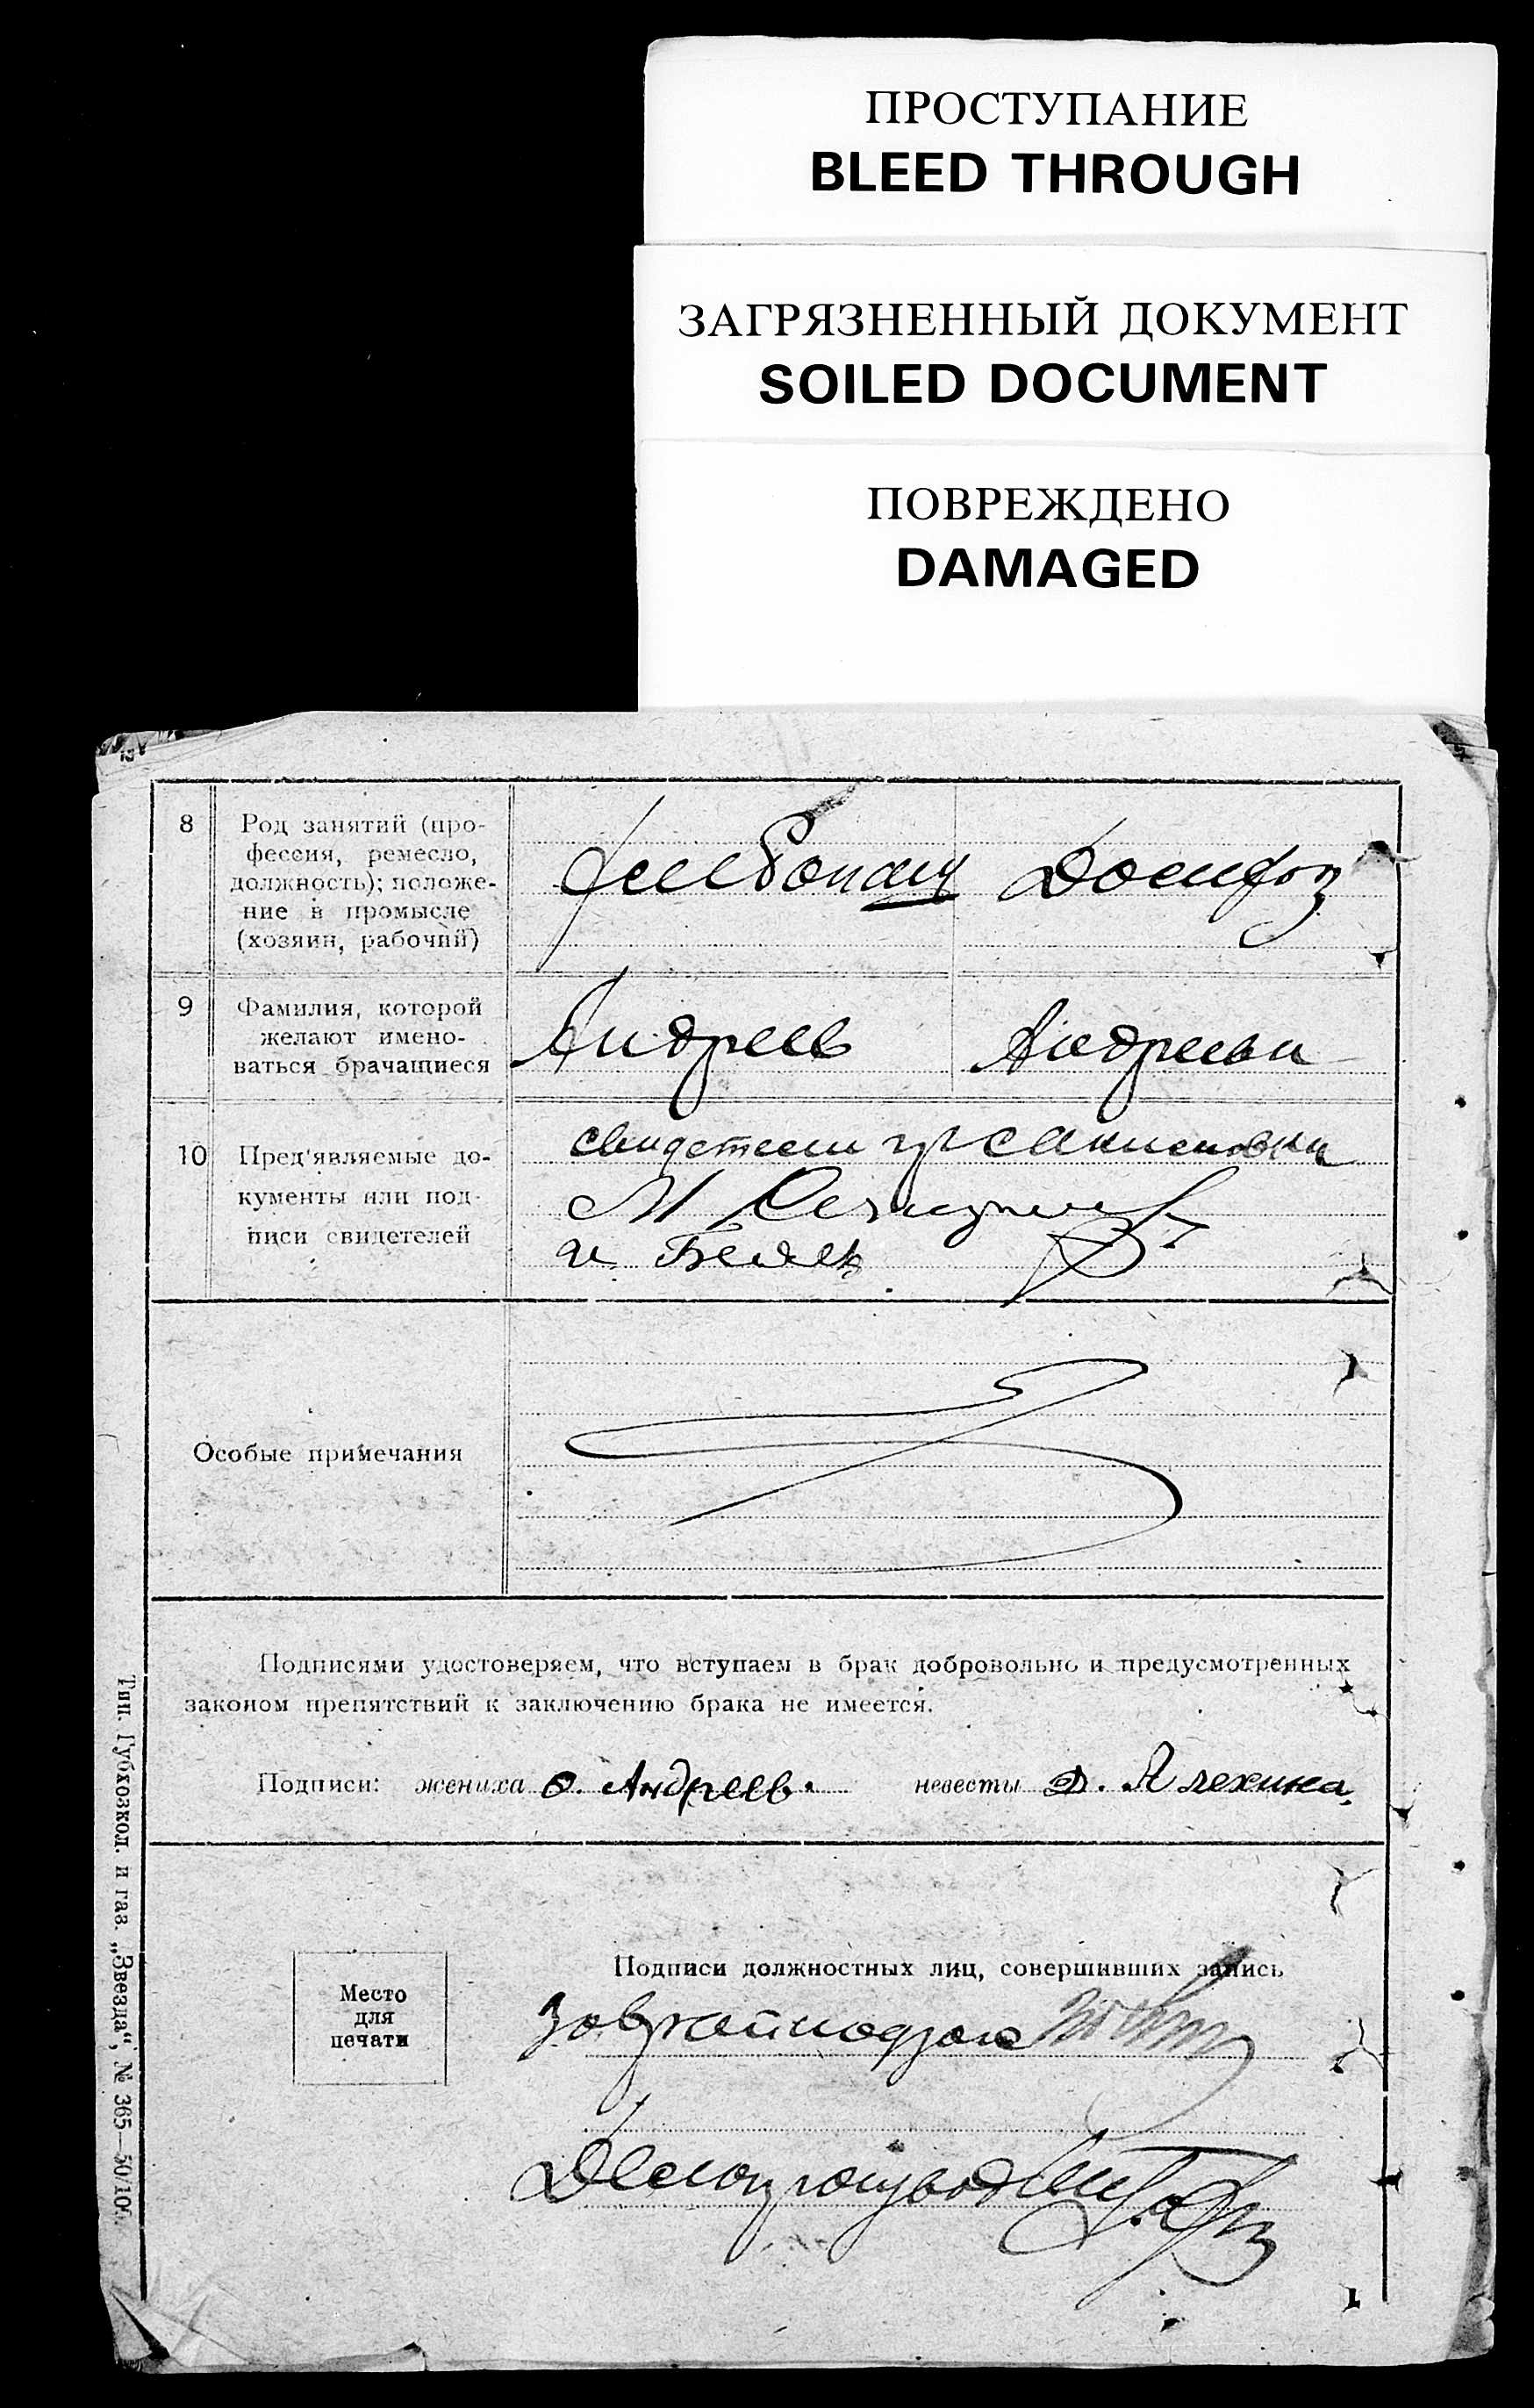 ПРОСТУПАНИЕ
BLEED THROUGH
ЗАГРЯЗНЕННЫЙ ДОКУМЕНТ
SOILED DOCUMENT
ПОВРЕЖДЕНО
DAMAGED
8 Род занятий (про-
фессия, ремесло,
должность); положе-
ние в промысле
(хозяин, рабочий)
9 Фамилия, которой
желают имено-
ваться брачащиеся
Андреев Андреева
10 Пред'являемые до-
кументы или под-
писи свидетелей
свидетели гр
М
и Беляев
Особые примечания
Подписями удостоверяем, что вступаем в брак добровольно и предусмотренных
законом препятствий к заключению брака не имеется.
Подписи: жениха Ф. Андреев. невесты Д. Алехина.
Место
для
печати
Подписи должностных лиц, совершивших запись
Делопроизводитель
Тип. Губхозкол. и газ. „Звезда“, № 365—50/100.